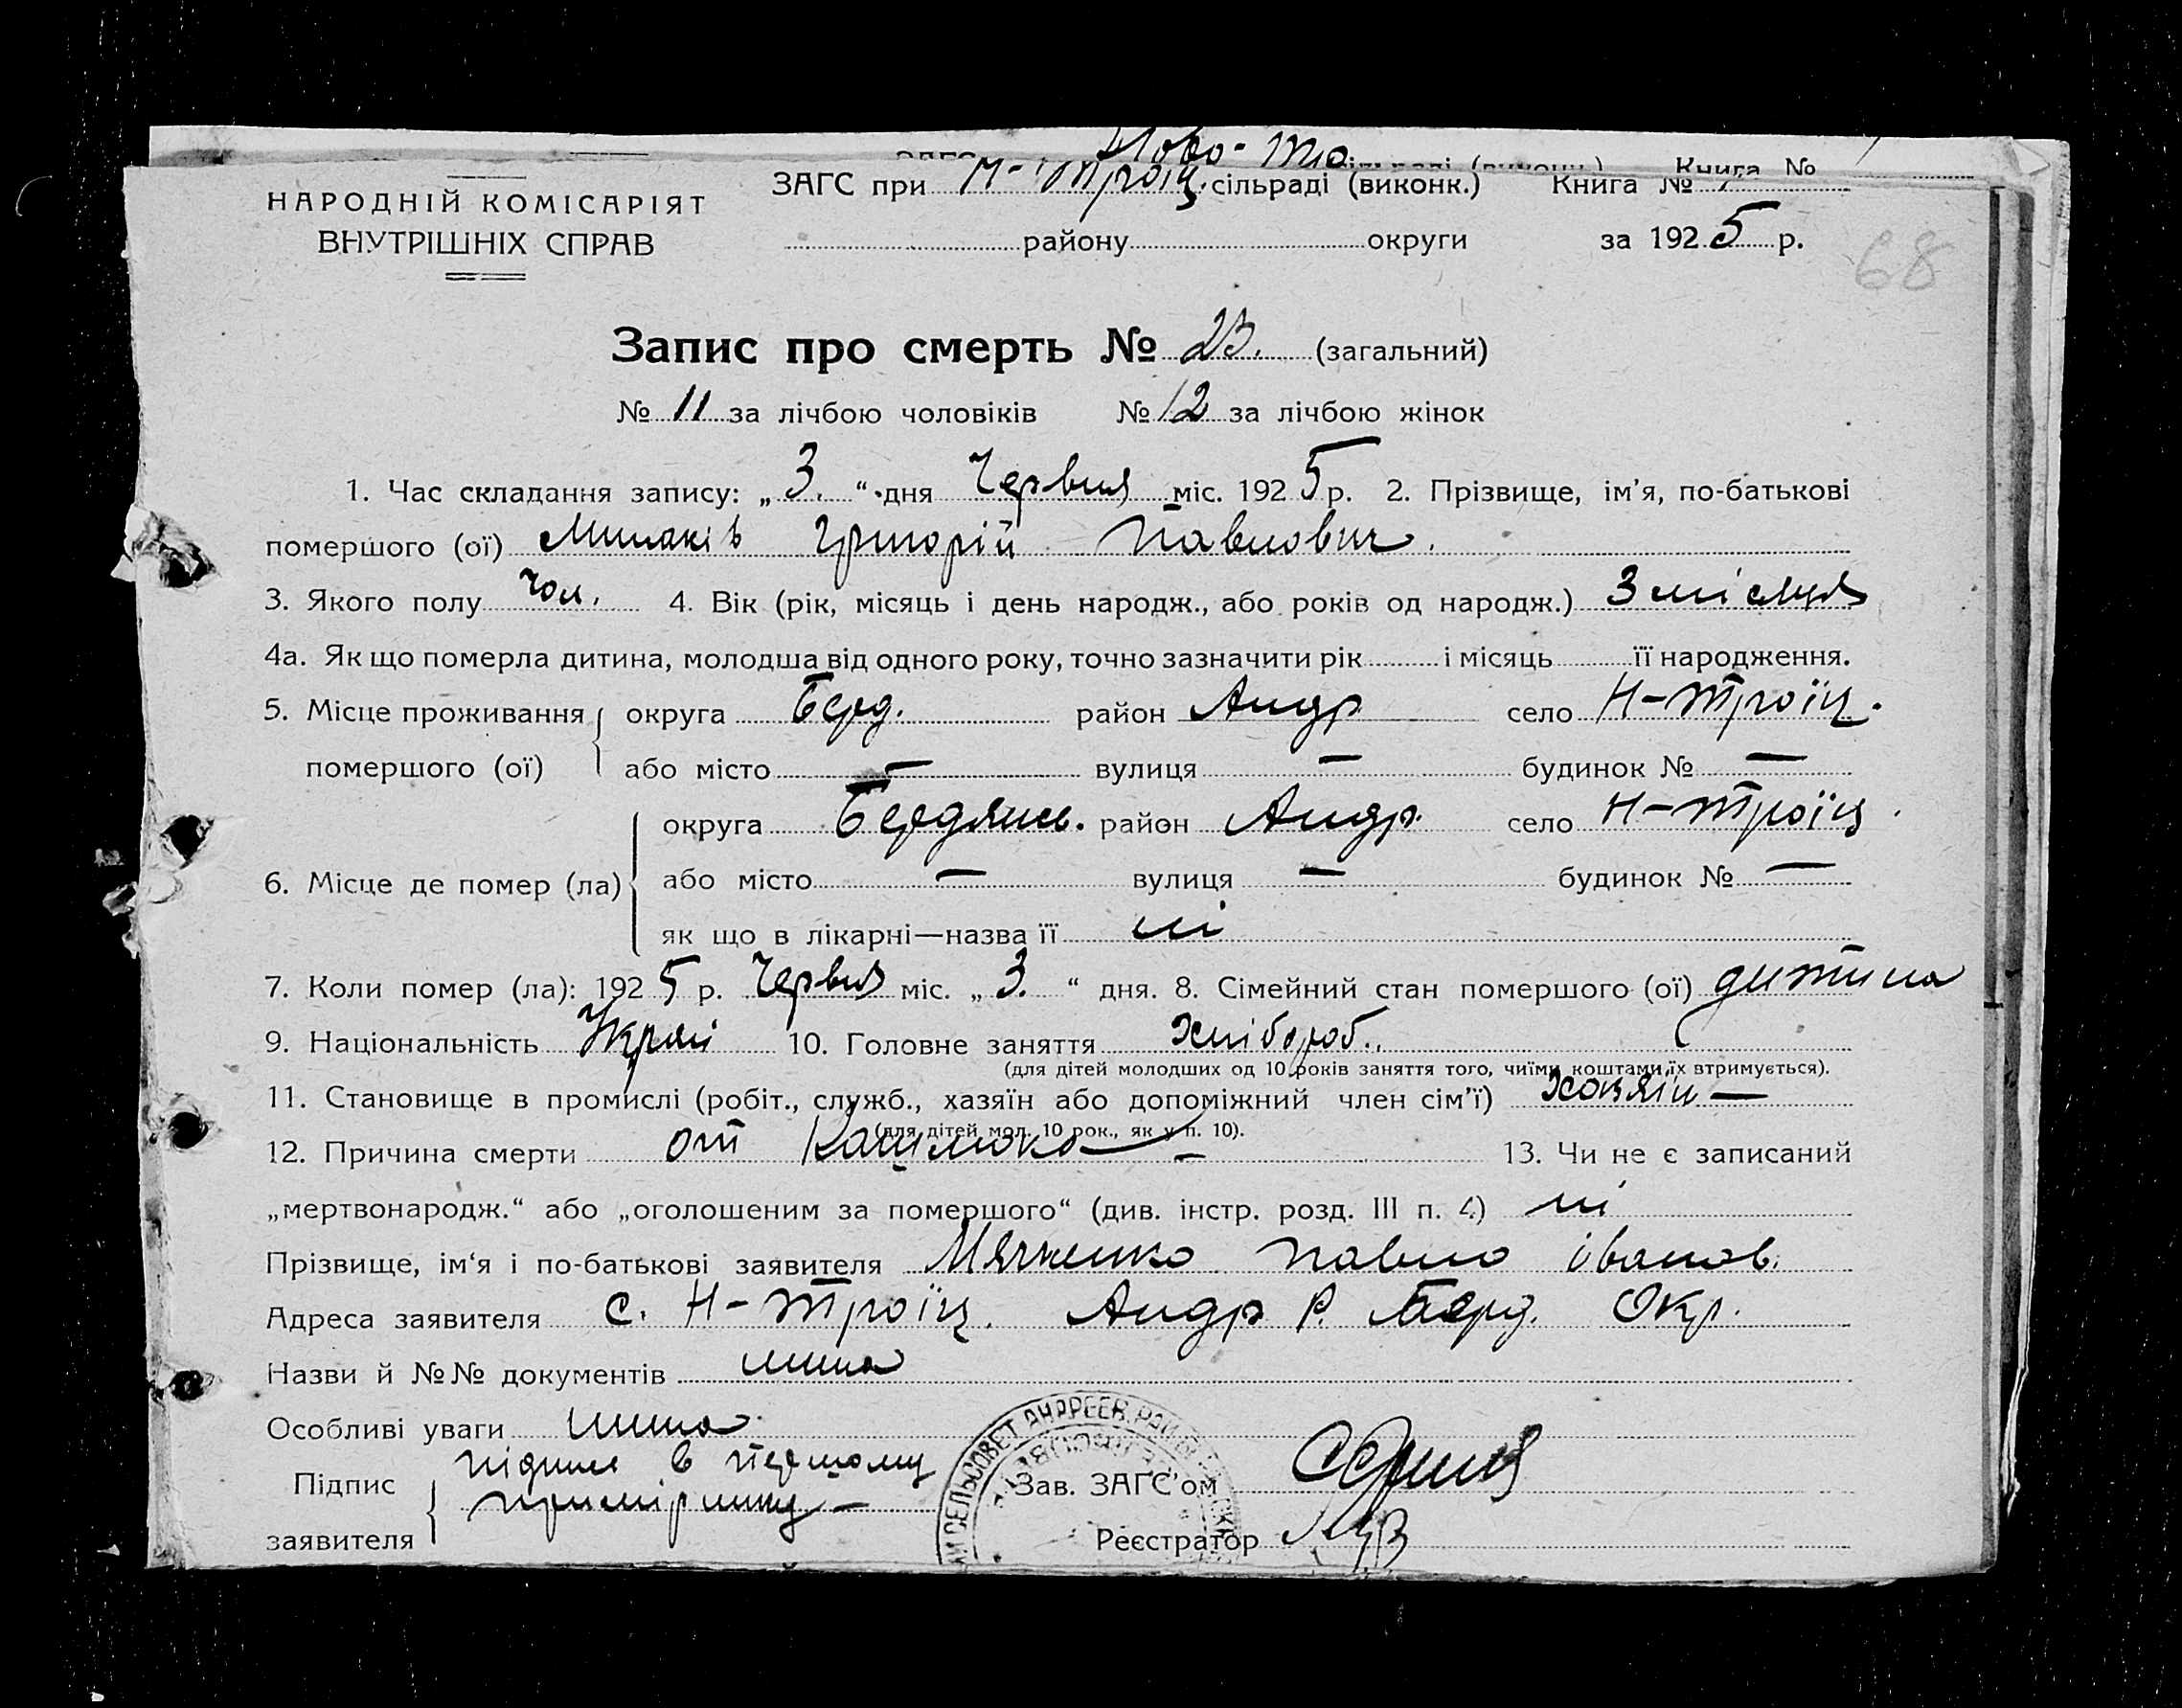 Ново-Тро
Книга №
НАРОДНІЙ КОМІСАРІЯТ
ВНУТРІШНІХ СПРАВ
ЗАГС при Н-Троїц. сільраді (виконк.) Книга №
району округи за 1925 р.
68
Запис про смерть № 23. (загальний)
№ 11 за лічбою чоловіків № 12 за лічбою жінок
1. Час складання запису: „3.“ дня Червня міс. 1925 р. 2. Прізвище, ім’я, по-батькові
помершого (ої) Григорій Павлович.
3. Якого полу Чол. 4. Вік (рік, місяць і день народж., або років од народж.) 3 місяця
4а. Як що померла дитина, молодша від одного року, точно зазначити рік і місяць її народження.
5. Місце проживання округа Берд. район Андр село Н-Троїц.
помершого (ої) або місто — вулиця — будинок № —
округа Бердянс. район Андр. село Н-Троїц
6. Місце де помер (ла) або місто — вулиця — будинок № —
як що в лікарні—назва її ні
7. Коли помер (ла): 1925 р. Червня міс. „3.“ дня. 8. Сімейний стан помершого (ої) дитина
9. Національність Україн 10. Головне заняття Хлібороб.
(для дітей молодших од 10 років заняття того, чиїми коштами їх втримується).
11. Становище в промислі (робіт., служб., хазяїн або допоміжний член сім’ї) хазяїн —
(для дітей мол. 10 рок., як у п. 10).
12. Причина смерти от 13. Чи не є записаний
„мертвонародж.“ або „оголошеним за помершого“ (див. інстр. розд. III п. 4) ні
Прізвище, ім‘я і по-батькові заявителя Павло Іванов.
Адреса заявителя с. Н-Троїц. Андр Р. Берд. Окр.
Назви й №№ документів нима
Особливі уваги нима
Підпис підпис в першому
заявителя примірнику —
СЕЛЬСОВЕТ АНДРЕЕВ. РАЙ
Зав. ЗАГС’ом
Реєстратор